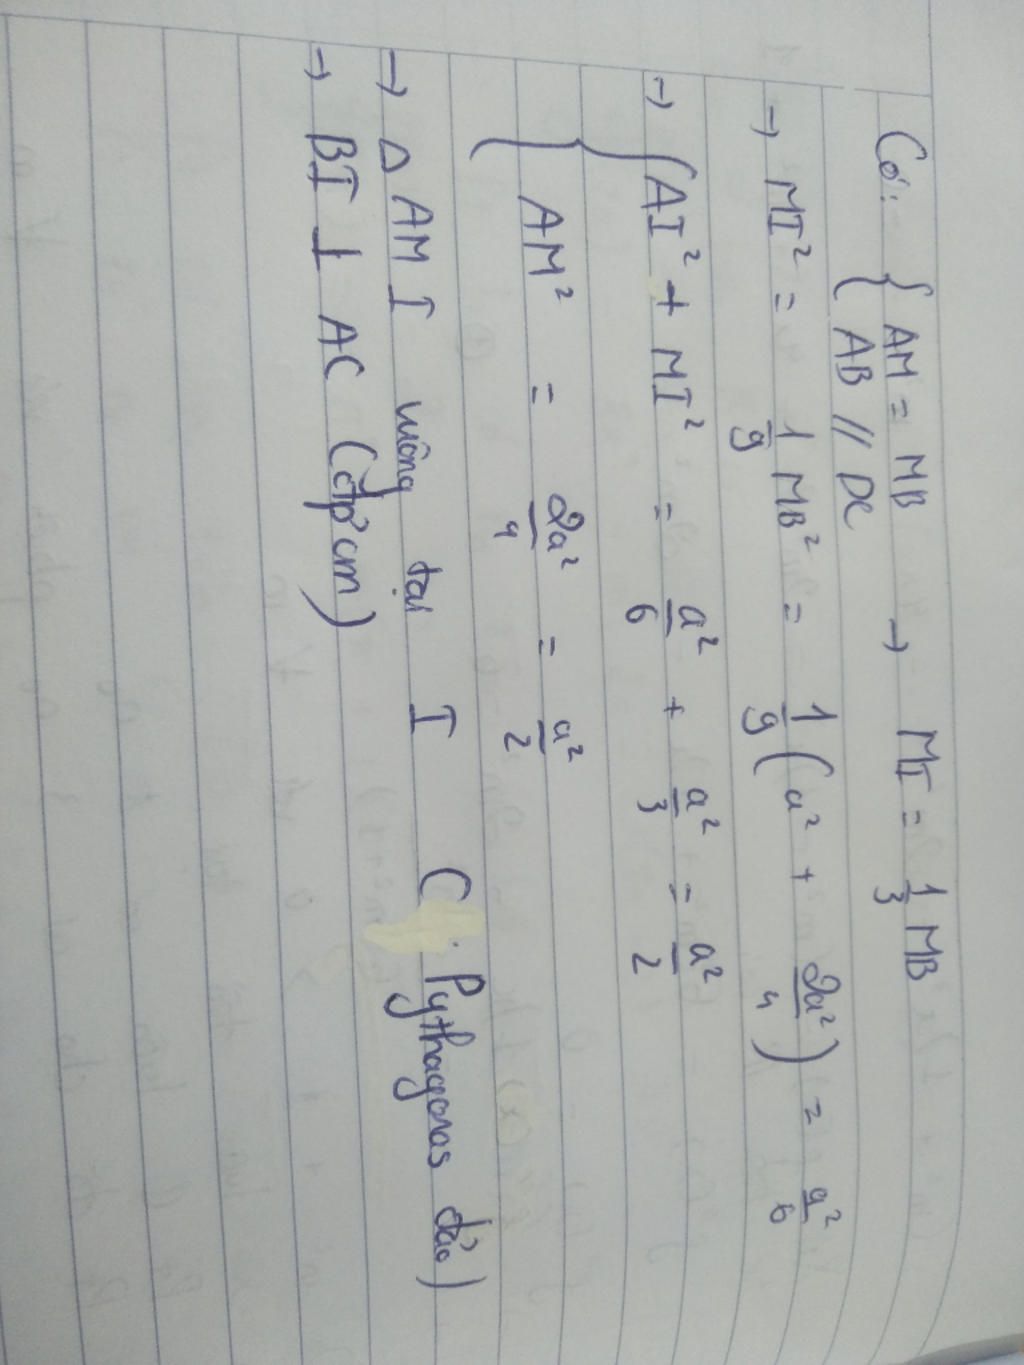 Có: { AM = MB → MI = 1/3 MB
{ AB // DC
→ MI² = 1/9 MB² = 1/9 (a² + 2a²/4) = a²/6
→ { AI² + MI² = a²/6 + a²/3 = a²/2
{ AM² = 2a²/4 = a²/2
→ Δ AMI vuông tại I (Pythagoras đảo)
→ BI ⊥ AC (đpcm)